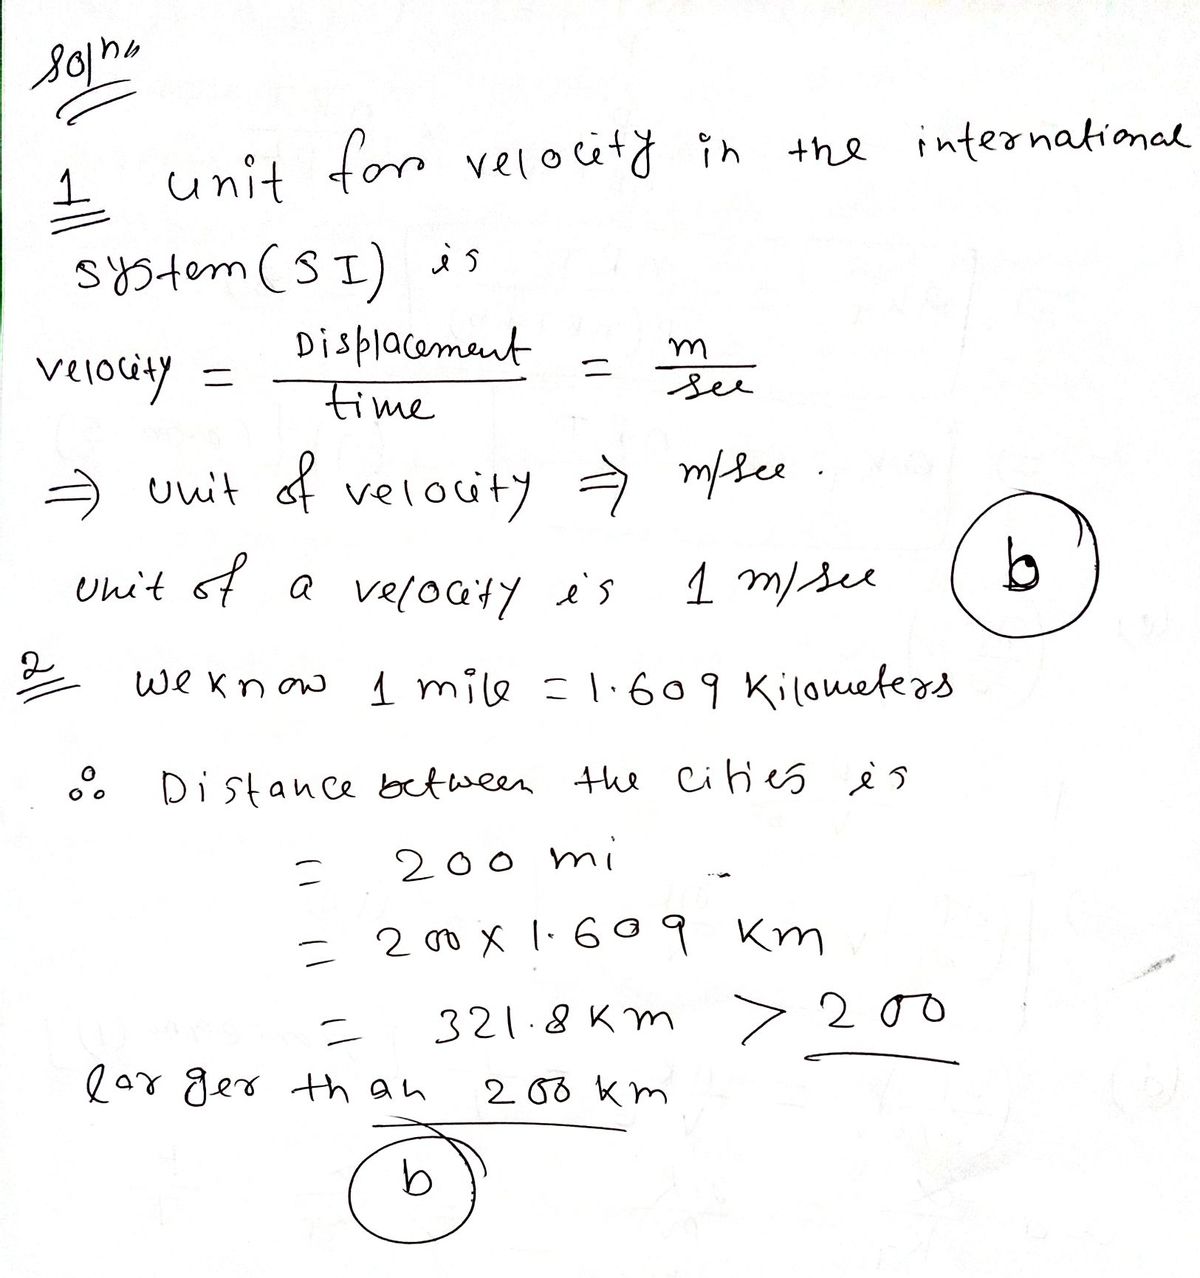 Solns
1 unit for velocity in the international
system (SI) is
velocity = Displacement / time = m / sec
⇒ unit of velocity ⇒ m/sec .
unit of a velocity is 1 m/sec b
2 we know 1 mile = 1.609 Kilometers
∴ Distance between the cities is
= 200 mi
= 200 x 1.609 Km
= 321.8 Km > 200
larger than 200 km
b